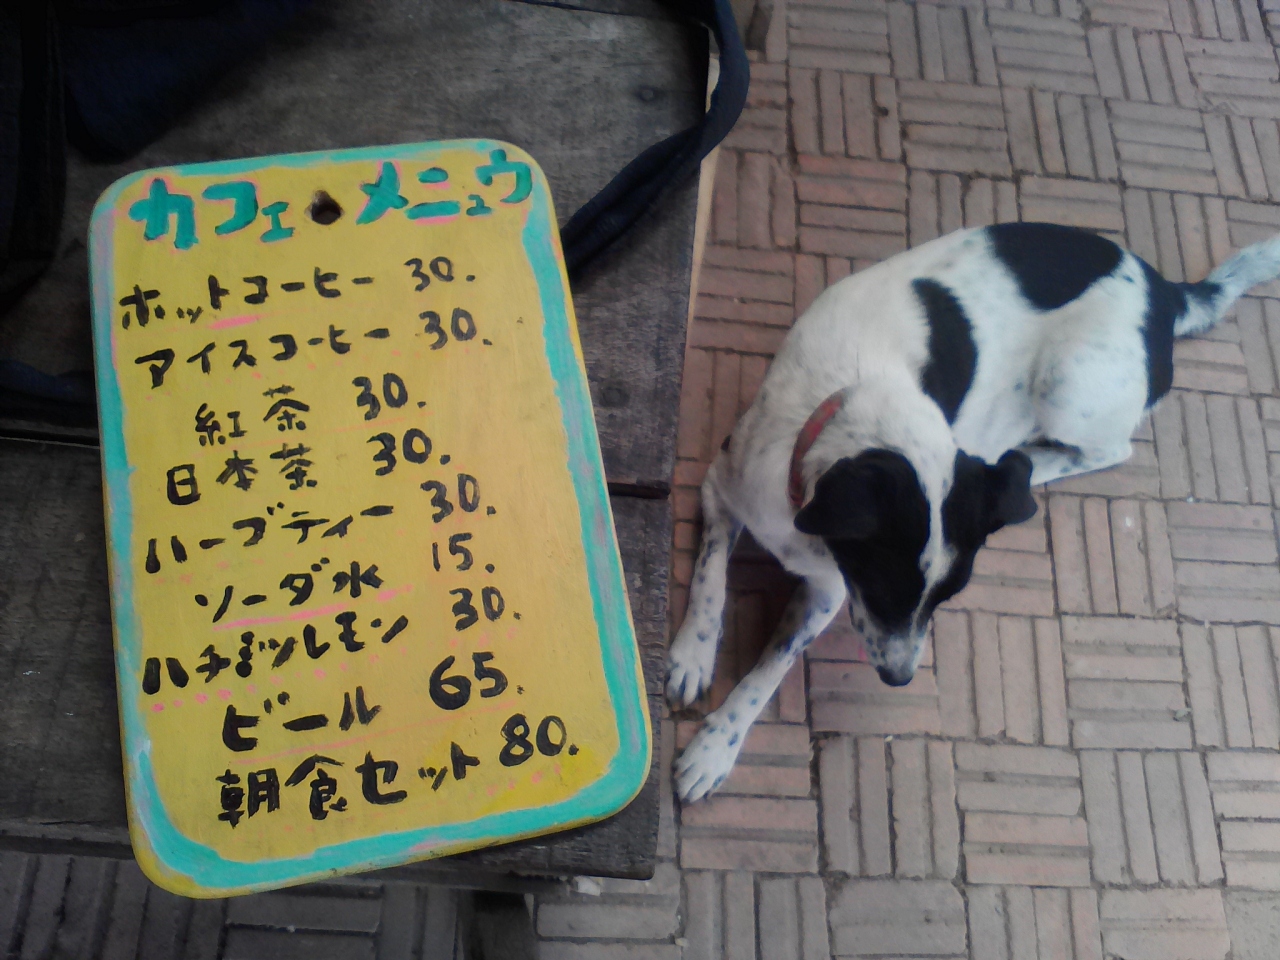 カフェ・メニュウ
ホットコーヒー 30.
アイスコーヒー 30.
紅茶 30.
日本茶 30.
ハーブティー 30.
ソーダ水 15.
ハチミツレモン 30.
ビール 65.
朝食セット 80.